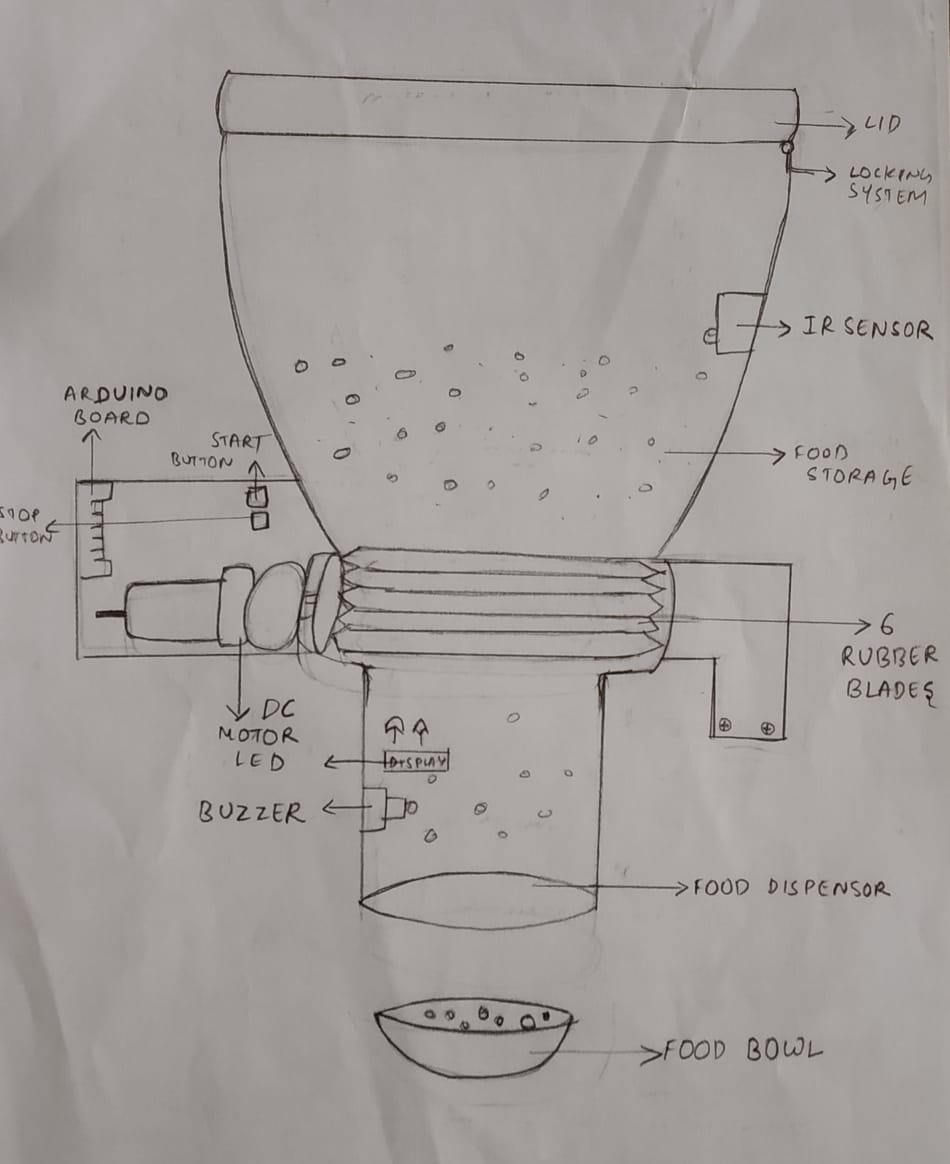 LID
LOCKING
SYSTEM
IR SENSOR
ARDUINO
BOARD
START
BUTTON
FOOD
STORAGE
STOP
BUTTON
6
RUBBER
BLADES
DC
MOTOR
LED
DISPLAY
BUZZER
FOOD DISPENSOR
FOOD BOWL